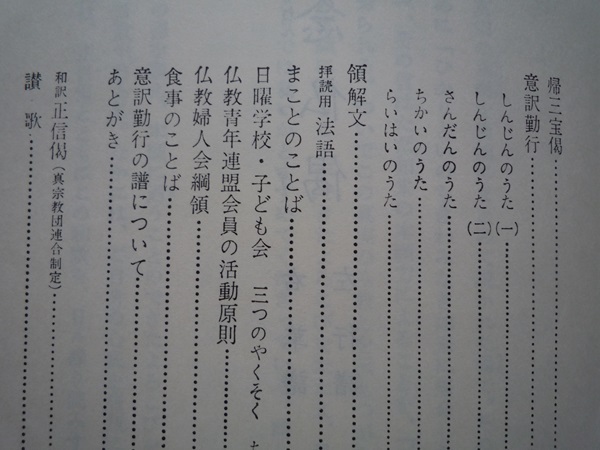 帰三宝偈
意訳勤行
しんじんのうた (一)
しんじんのうた (二)
さんだんのうた
ちかいのうた
らいはいのうた
領解文
拝読用 法語
まことのことば
日曜学校・子ども会 三つのやくそく
仏教青年連盟会員の活動原則
仏教婦人会綱領
食事のことば
意訳勤行の譜について
あとがき
和訳 正信偈(真宗教団連合制定)
讃歌